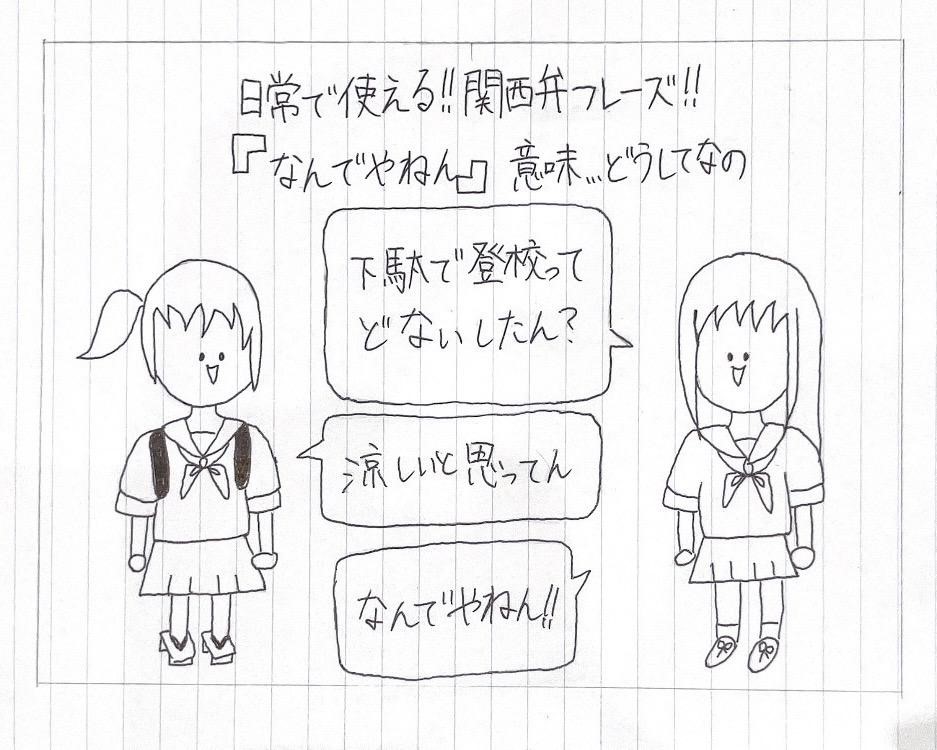 日常で使える!!関西弁フレーズ!!
『なんでやねん』意味...どうしてなの
下駄で登校って
どないしたん?
涼しいと思ってん
なんでやねん!!